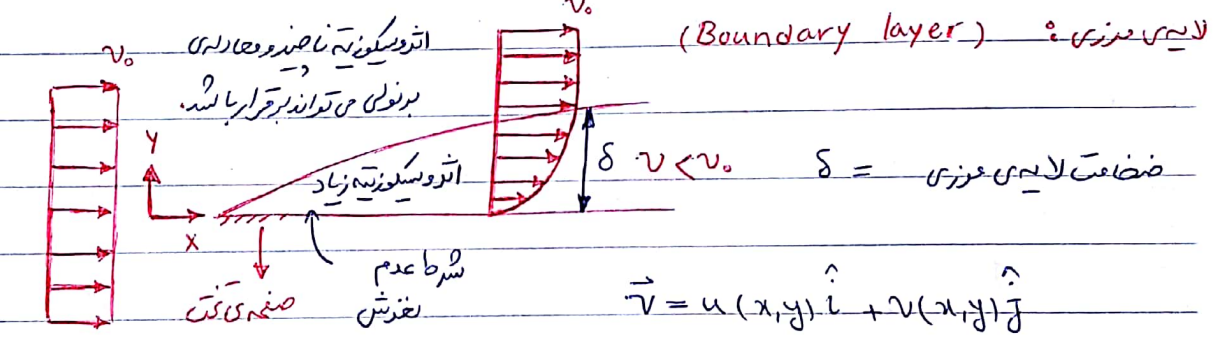 لایه‌ی مرزی: (Boundary layer)
v₀
v₀
اثر ویسکوزیته ناچیز و معادله‌ی
برنولی می تواند برقرار باشد.
Y
X
اثر ویسکوزیته زیاد
δ v < v₀
ضخامت لایه‌ی مرزی = δ
شرط عدم
لغزش
صفحه‌ی تخت
v⃗ = u(x,y) î + v(x,y) ĵ